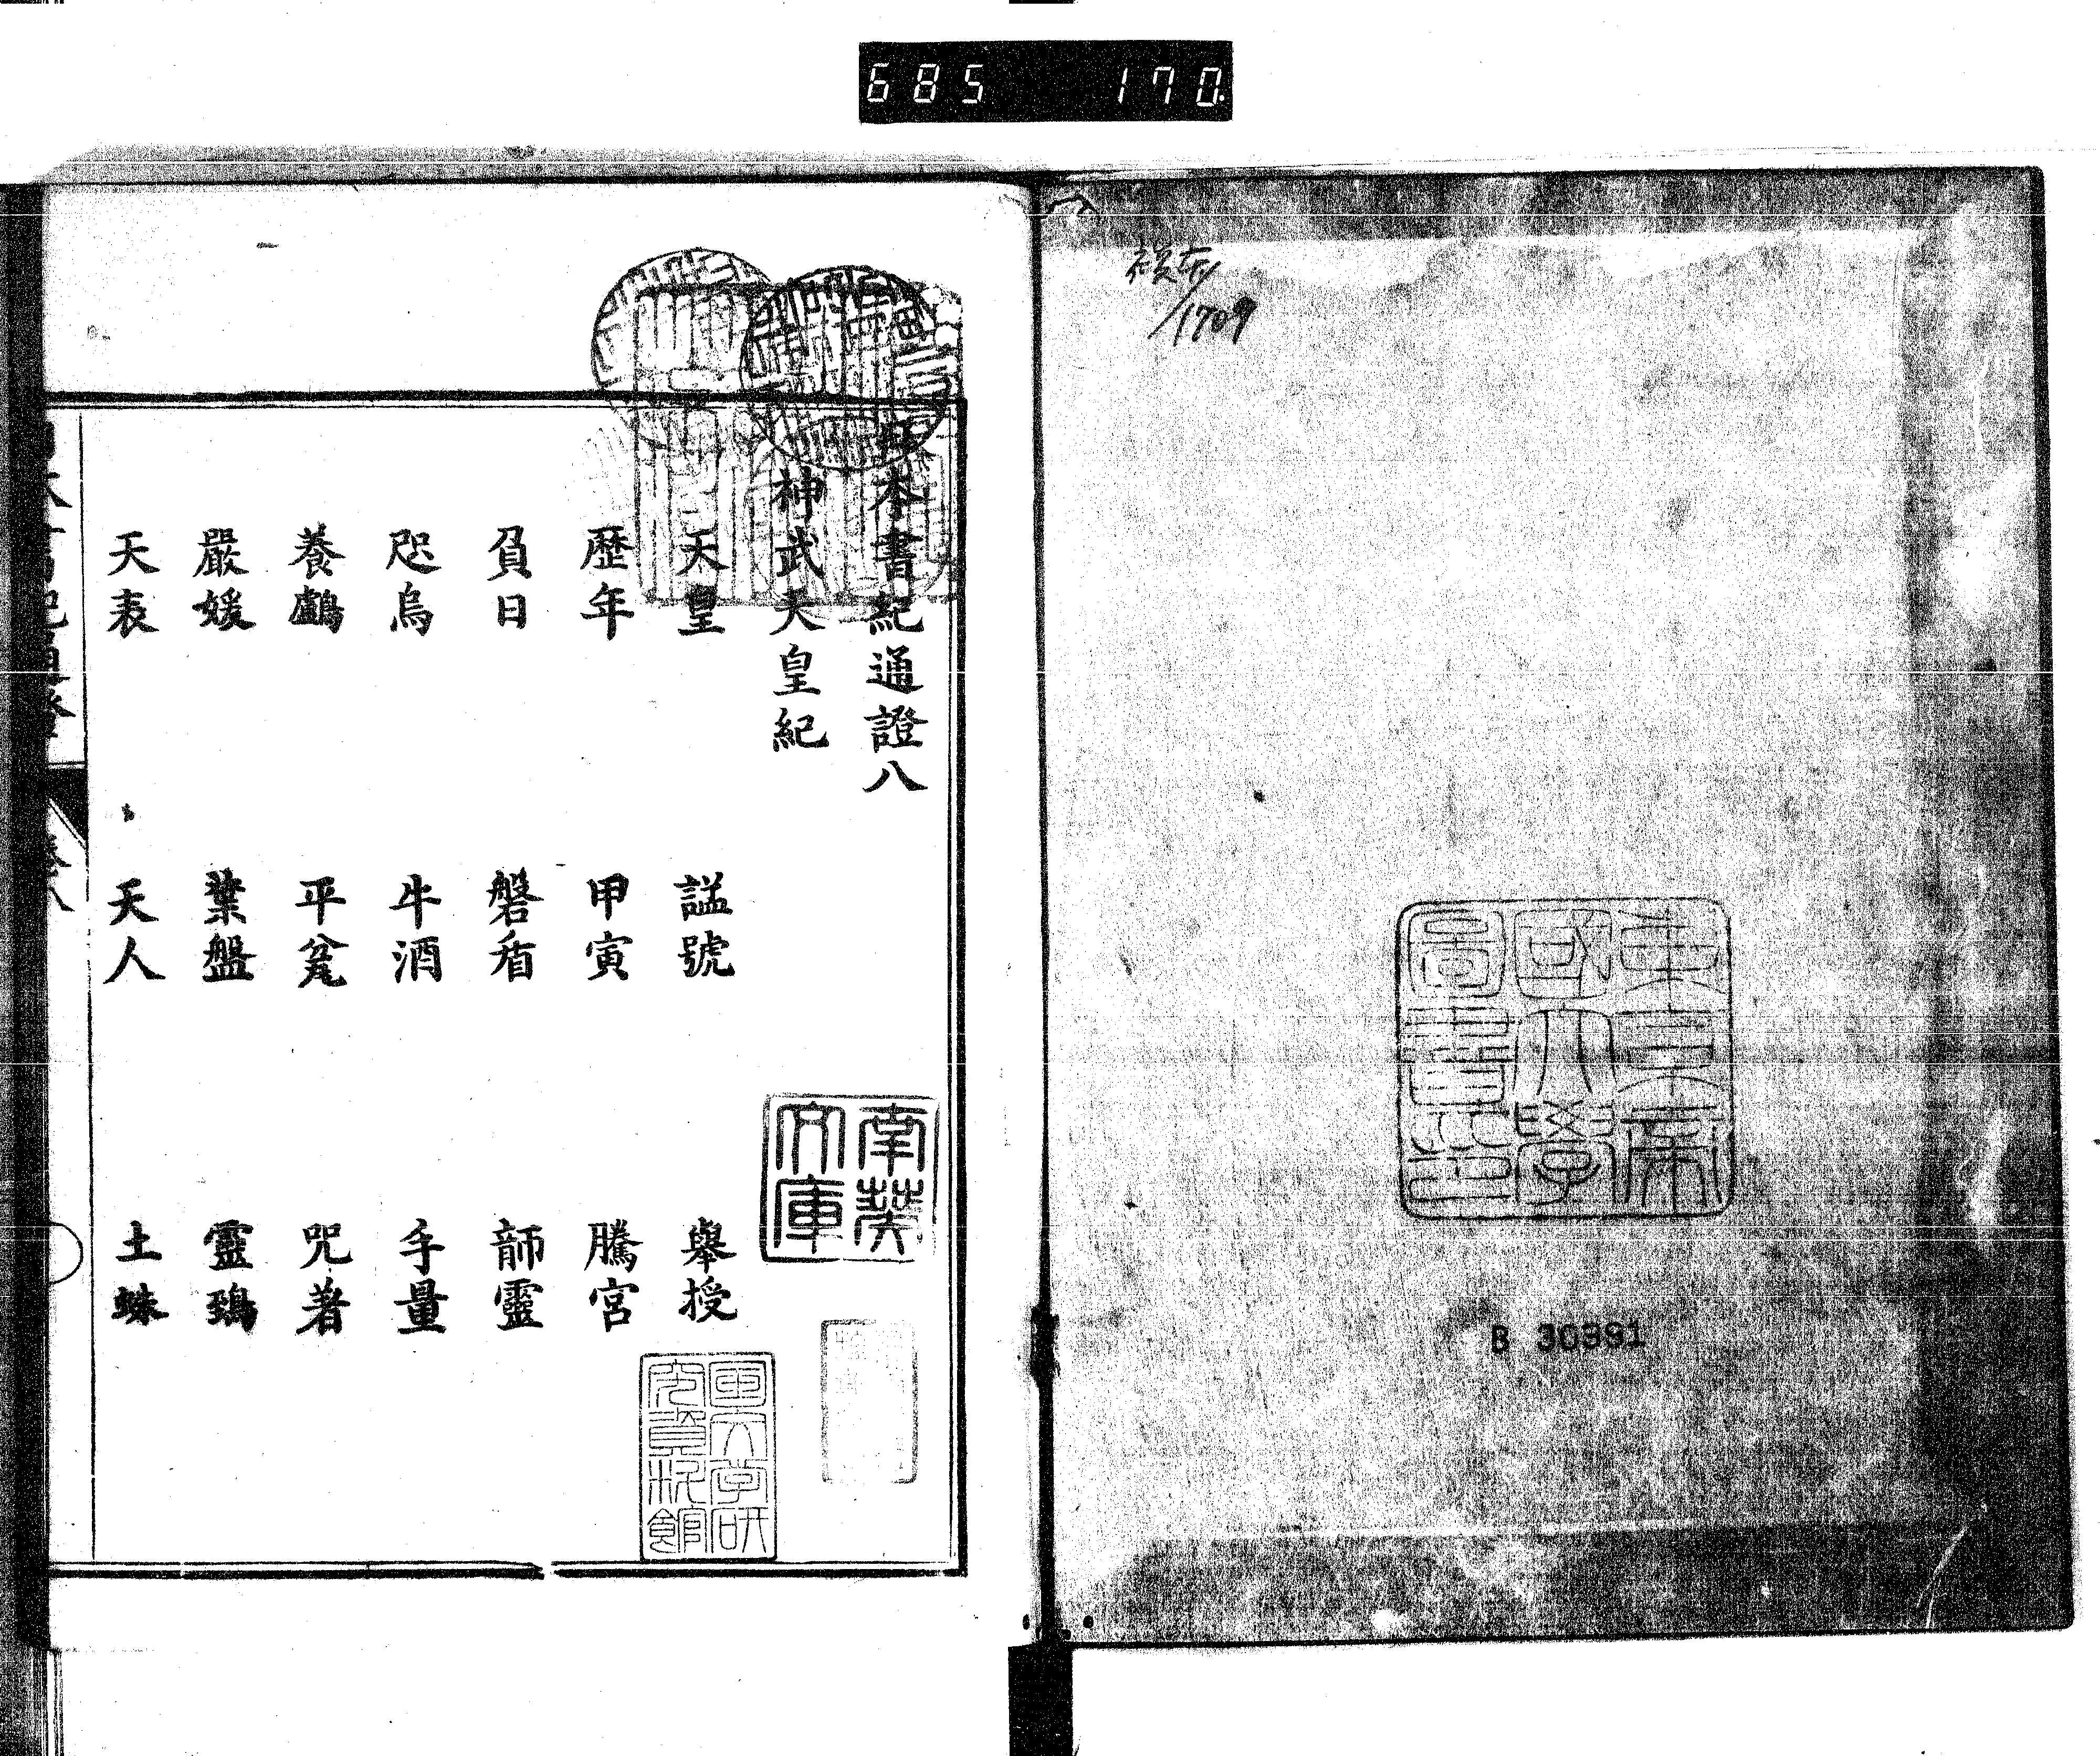 685 170
1709
東京帝
國大學
圖書印
B 30391
日本書紀通證八
神武天皇紀
天皇 諡號 擧授
歷年 甲寅 騰宮
負日 磐盾 韴靈
咫烏 牛酒 手量
養鸕 平瓫 咒著
嚴媛 葉盤 靈鵄
天表 天人 土蛛
南葵
文庫
国文学研
究資料館